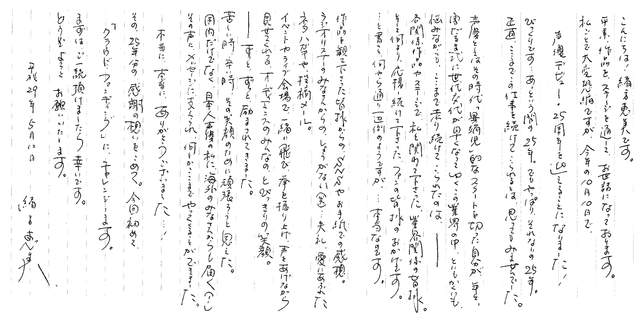 こんにちは！緒方恵美です。
平素、作品を、ステージを通して、お世話になっております。
私ごとで大変恐縮ですが、今年の10月10日で
声優デビュー・25周年と(笑)いうことになりました！
びっくりです。あっという間の25年。でもやっぱり、それなりの25年。
正直、ここまでこの仕事を続けてこられるとは、思ってもみませんでした。
声優としては、その時代、異端児的なスタートを切った自分が、年を
重ねるままに世代交代が早くなってゆくこの業界の中、ともかくにも
悩みながらも、ここまで走り続けてこられたのは――
各関係作品やステージで、私と関わって下さった業界関係の皆様。
そして何より、応援し続けて下さった、ファンの皆様のおかげです。
…と書くと何やら通り一辺倒のようですが、…本当なんです。
作品を観て下さった皆様からの、SNSやお手紙での感想。
ラジオリスナーのみなさんからの、しょうがない(笑)…失礼、愛にあふれた
ネタハガキや投稿メール。
イベントやライブ会場で、一緒に飛び、拳を振り上げ、声をあげながら
見せてくれる、オーディエンスのみんなの、とびきりの笑顔。
――ずっと、ずっと、励まされてきました。
苦しい時、辛い時、その笑顔のために頑張ろうと思えた。
国内だけでなく、日本人声優の私に、海外のみなさんからも届く(！)
その声に、メッセージに支えられ、何とかここまでやってくることができました。
本当に、本当に、ありがとうございました…！
その25年分の感謝の想いをこめて、今回初めて
『クラウドファンディング』に、チャレンジします。
まずは、ご一読頂けましたら幸いです。
どうぞよろしくお願いいたします。
平成29年5月10日
緒方恵美